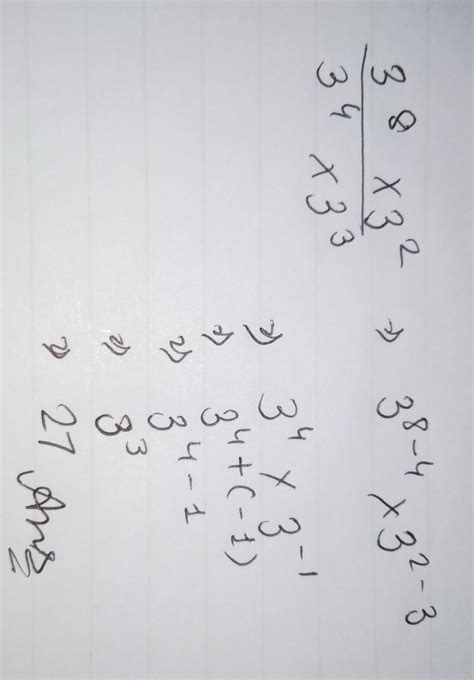 3⁸ × 3² / 3⁴ × 3³ ⇒ 3⁸⁻⁴ × 3²⁻³
⇒ 3⁴ × 3⁻¹
⇒ 3⁴⁺⁽⁻¹⁾
⇒ 3⁴⁻¹
⇒ 3³
⇒ 27 Ans